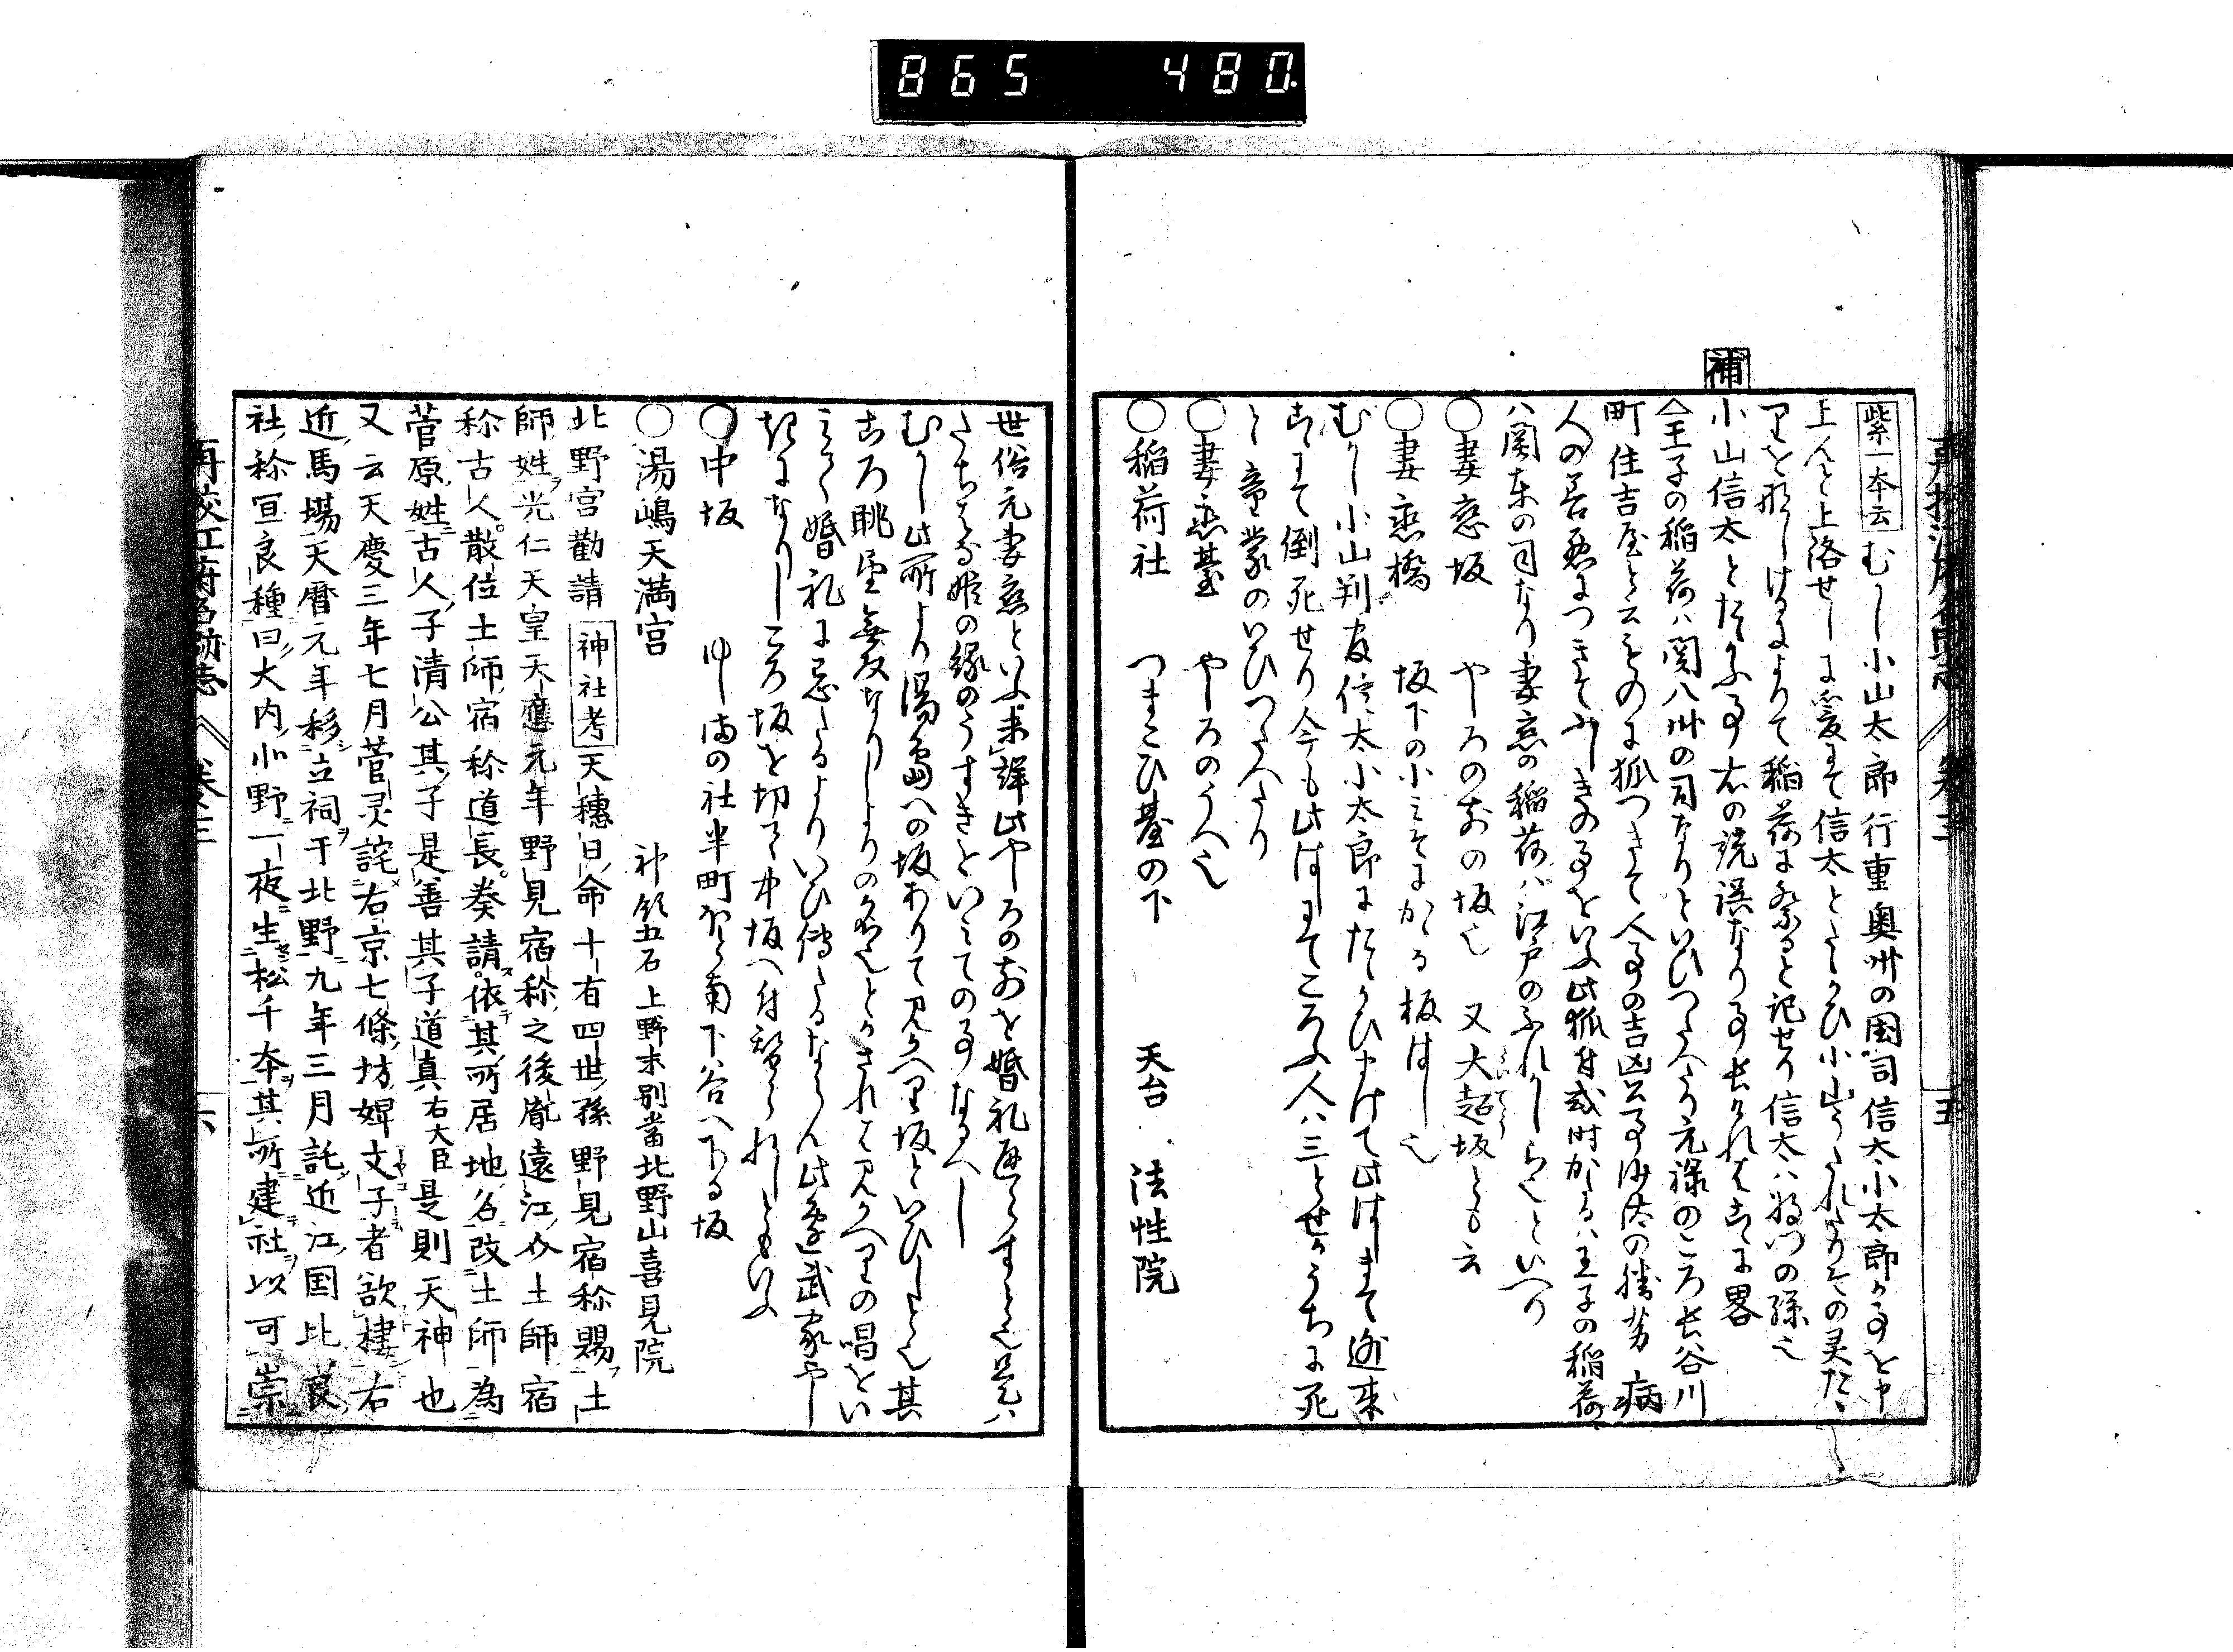 865 480
補
紫一本云 むかし小山太郎行重奥州の国司信太小太郎か事を申
上んと上洛せしに爰にて信太とたゝかひ小山うたれたりその灵たゝ
りを形しけるによりて稲荷に祭ると記せり信太ハ将門の孫也
小山信太とたゝかふ事右の説誤なり事長けれはこゝに畧
△王子の稲荷ハ関八州の司なりといひつたへたり元禄のころ長谷川
町住吉屋と云ものに狐つきて人事の吉凶公事沙汰の勝劣病
人の善悪につきてふしきの事をいふ此狐付或時かたるハ王子の稲荷
ハ関東の司なり妻恋の稲荷ハ江戸のふれかしら也といへり
○妻恋坂 やしろの前の坂也 又大超坂とも云
○妻恋橋 坂下の小みそにかゝる板はし也
むかし小山判官信太小太郎にたゝかひまけて此はしまて逃来
こゝにて倒死せり今も此はしにてころふ人ハ三とせかうちに死
と童蒙のいひつたへたり
○妻恋臺 やしろのうへ也
○稲荷社 つまこひ臺の下 天台 法性院
世俗元妻恋といふ未詳此やしろの前を婚礼通らすと也是ハ
たちたる姫の縁のうすきといふての事なるへし
むかし此所より湯島への坂ありて見かへり坂といひしと也其
ころ眺望無双なりしよりの名也とかされは見かへりの唱をい
みて婚礼に忌たるよりいひ傳たるならん此邊武家や
きになりしころ坂を切て中坂へ付替られしともいふ
○中坂 ゆしまの社半町ほと南下谷へ下る坂
○湯嶋天満宮 神領五石 上野末別當北野山喜見院
北野宮勸請 神社考 天穗日命十有四世孫野見宿称賜土
師姓光仁天皇天應元年野見宿称之後胤遠江介土師宿
称古人散位土師宿称道長奏請依其所居地名改土師為
菅原姓古人子清公其子是善其子道真右大臣是則天神也
又云天慶三年七月菅灵詫右京七條坊婢文子者欲棲右
近馬場天暦元年移立祠于北野九年三月託近江国比良
社称宜良種曰大内北野一夜生松千本其所建社以可崇
再校江府名跡志 巻三 六